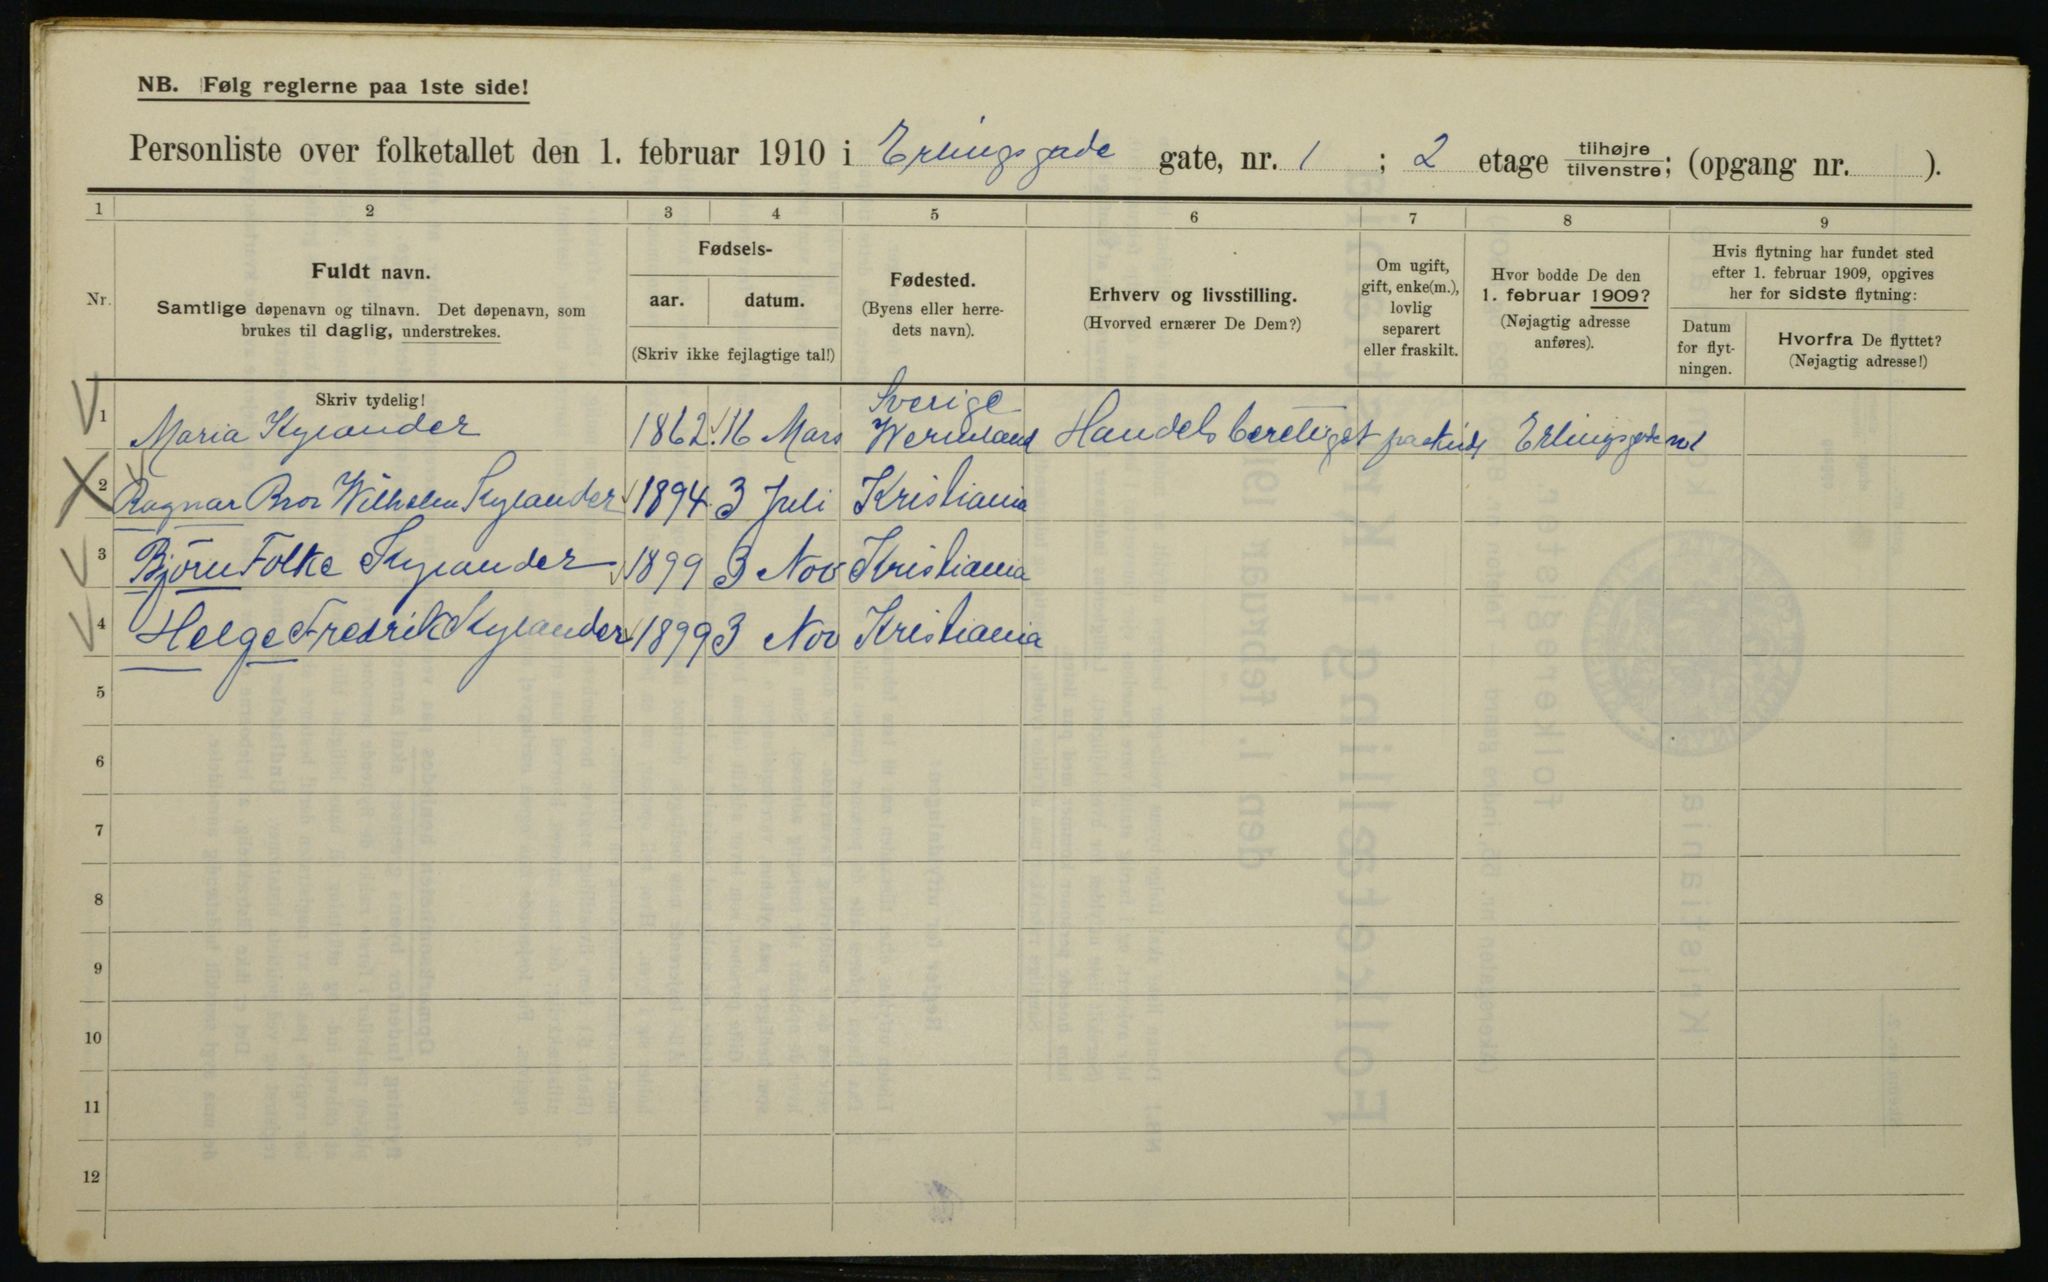 NB. Følg reglerne paa 1ste side!
Personliste over folketallet den 1. februar 1910 i Erlingsgade gate, nr. 1 ; 2 etage tilhøjre tilvenstre; (opgang nr. ).
1 2 3 4 5 6 7 8 9
Nr.
Fuldt navn.
Samtlige døpenavn og tilnavn. Det døpenavn, som
brukes til daglig, understrekes.
Fødsels-
aar. datum.
(Skriv ikke fejlagtige tal!)
Fødested.
(Byens eller herre-
dets navn).
Erhverv og livsstilling.
(Hvorved ernærer De Dem?)
Om ugift,
gift, enke(m.),
lovlig
separert
eller fraskilt.
Hvor bodde De den
1. februar 1909?
(Nøjagtig adresse
anføres).
Hvis flytning har fundet sted
efter 1. februar 1909, opgives
her for sidste flytning:
Datum
for flyt-
ningen.
Hvorfra De flyttet?
(Nøjagtig adresse!)
Skriv tydelig!
Sverige
1 Maria Kylander 1862 16 Mars Wermland Handelsberetiget Erlingsgade no 1
2 Ragnar Bror Wilhelm Kylander 1894 3 Juli Kristiania
3 Bjørn Folke Kylander 1899 3 Nov Kristiania
4 Helge Fredrik Kylander 1899 3 Nov Kristiania
5
6
7
8
9
10
11
12